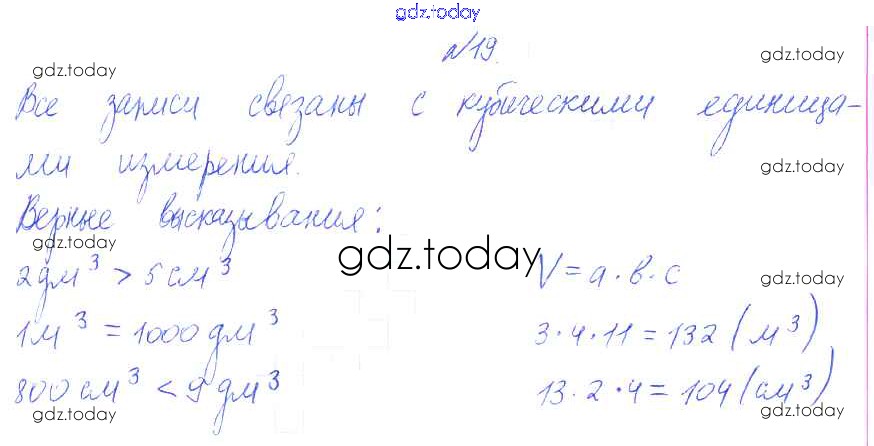 gdz.today
№19.
gdz.today gdz.today
Все записи связаны с кубическими единица-
ми измерения.
gdz.today
Верные высказывания:
gdz.today
2дм³ > 5 см³ gdz.today V = a · b · c gdz.today
1м³ = 1000 дм³ 3 · 4 · 11 = 132 (м³)
800 см³ < 9 дм³ 13 · 2 · 4 = 104 (см³)
gdz.today gdz.today